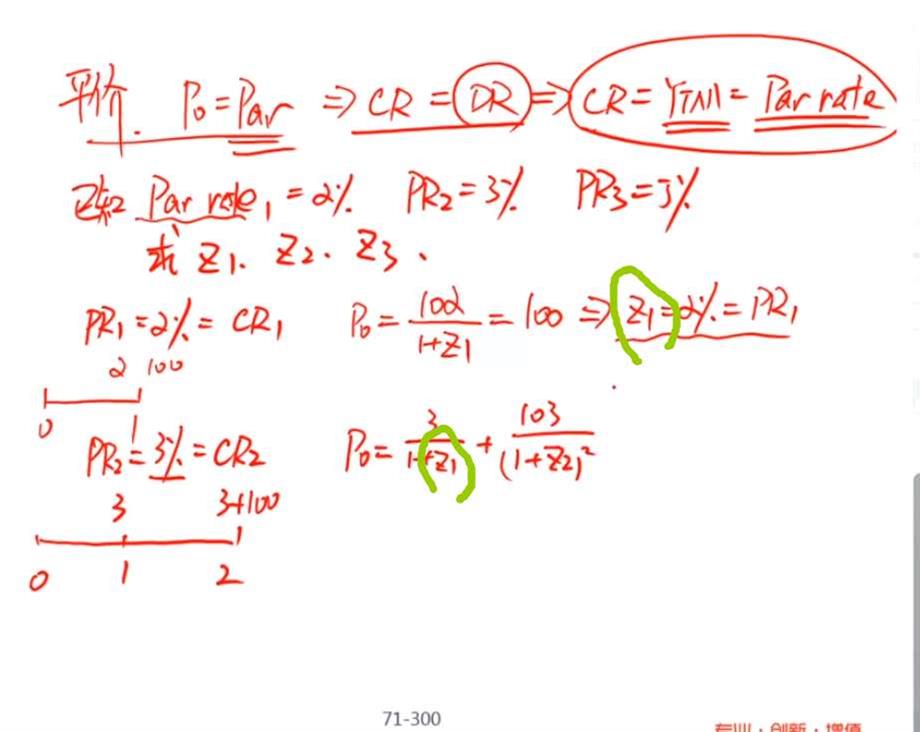 平价. P₀=Par ⇒ CR = DR ⇒ CR = YTM = Par rate
已知 Par rate₁ = 2% PR₂=3% PR₃=5%
求 Z₁. Z₂. Z₃.
PR₁=2%= CR₁ P₀= 102/(1+Z₁) = 100 ⇒ Z₁=2%=PR₁
2 100
0 1
PR₂=3%=CR₂ P₀= 3/(1+Z₁) + 103/(1+Z₂)²
3 3+100
0 1 2
71-300
专业·创新·增值